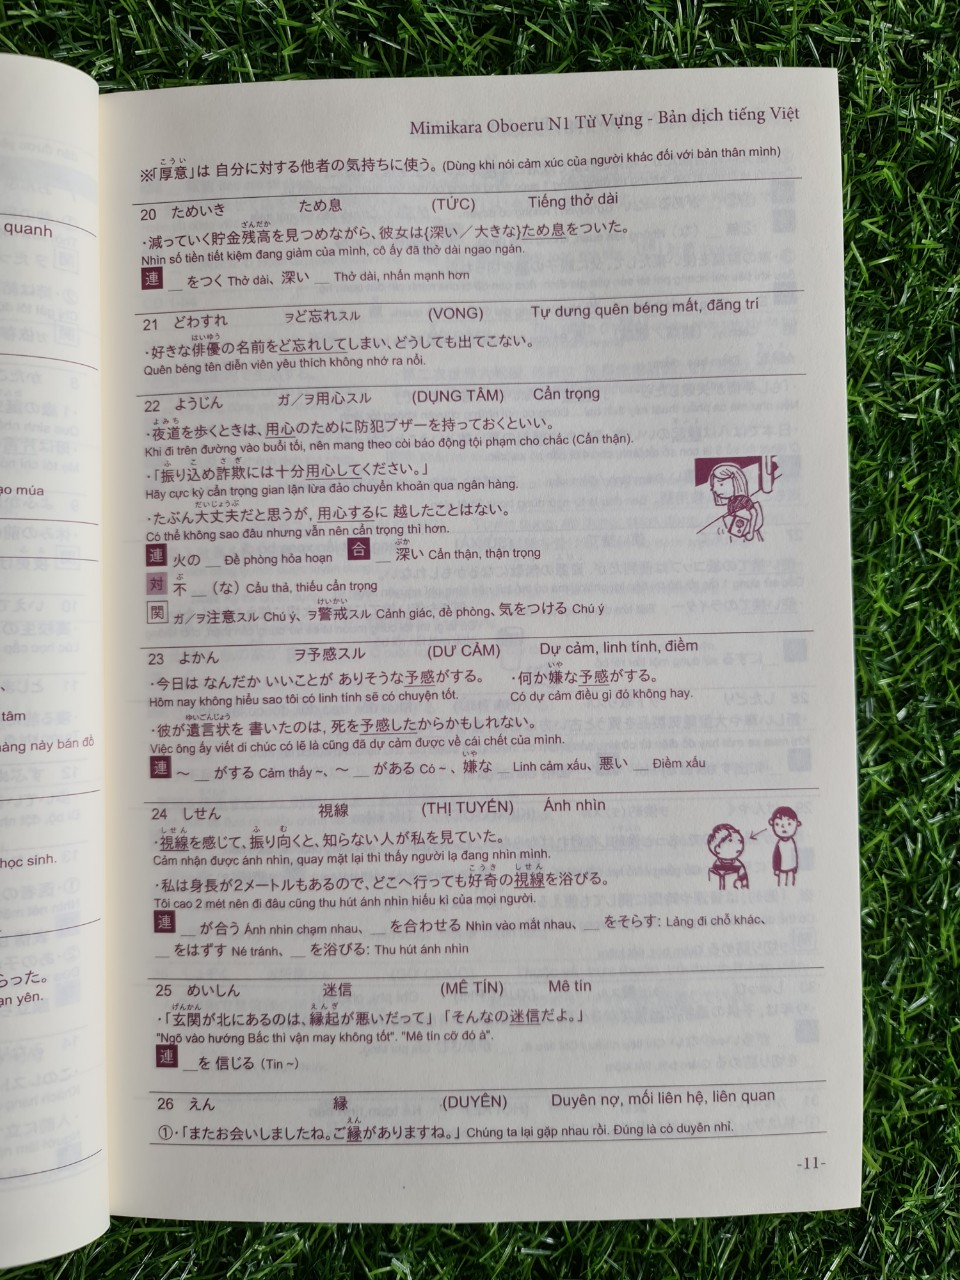 quanh
ạo múa
tâm
hàng này bán đồ
học sinh.
らった。
ạn yên.
Mimikara Oboeru N1 Từ Vựng - Bản dịch tiếng Việt
こうい
※「厚意」は 自分に対する他者の気持ちに使う。(Dùng khi nói cảm xúc của người khác đối với bản thân mình)
20 ためいき ため息 (TỨC) Tiếng thở dài
ざんだか
・減っていく貯金残高を見つめながら、彼女は{深い／大きな}ため息をついた。
Nhìn số tiền tiết kiệm đang giảm của mình, cô ấy đã thở dài ngao ngán.
連 __ をつく Thở dài、深い __ Thở dài, nhấn mạnh hơn
21 どわすれ ヲど忘れスル (VONG) Tự dưng quên béng mất, đãng trí
はいゆう
・好きな俳優の名前をど忘れしてしまい、どうしても出てこない。
Quên béng tên diễn viên yêu thích không nhớ ra nổi.
22 ようじん ガ／ヲ用心スル (DỤNG TÂM) Cẩn trọng
よみち
・夜道を歩くときは、用心のために防犯ブザーを持っておくといい。
Khi đi trên đường vào buổi tối, nên mang theo còi báo động tội phạm cho chắc (Cẩn thận).
ふ こ さぎ
・「振り込め詐欺には十分用心してください。」
Hãy cực kỳ cẩn trọng gian lận lừa đảo chuyển khoản qua ngân hàng.
だいじょうぶ
・たぶん大丈夫だと思うが、用心するに 越したことはない。
Có thể không sao đâu nhưng vẫn nên cẩn trọng thì hơn.
ぶか
連 火の __ Đề phòng hỏa hoạn 合 __ 深い Cẩn thận, thận trọng
ぶ
対 不 __ （な）Cẩu thả, thiếu cẩn trọng
けいかい
関 ガ／ヲ注意スル Chú ý、ヲ警戒スル Cảnh giác, đề phòng、気をつける Chú ý
23 よかん ヲ予感スル (DỰ CẢM) Dự cảm, linh tính, điềm
いや
・今日は なんだか いいことが ありそうな予感がする。 ・何か嫌な予感がする。
Hôm nay không hiểu sao tôi có linh tính sẽ có chuyện tốt. Có dự cảm điều gì đó không hay.
ゆいごんじょう
・彼が遺言状を 書いたのは、死を予感したからかもしれない。
Việc ông ấy viết di chúc có lẽ là cũng đã dự cảm được về cái chết của mình.
いや
連 ～ __ がする Cảm thấy ~、～ __ がある Có ~ 、嫌な __ Linh cảm xấu、悪い __ Điềm xấu
24 しせん 視線 (THỊ TUYẾN) Ánh nhìn
しせん ふ む
・視線を感じて、振り向くと、知らない人が私を見ていた。
Cảm nhận được ánh nhìn, quay mặt lại thì thấy người lạ đang nhìn mình.
こうき しせん
・私は身長が2メートルもあるので、どこへ行っても好奇の視線を浴びる。
Tôi cao 2 mét nên đi đâu cũng thu hút ánh nhìn hiếu kì của mọi người.
連 __ が合う Ánh nhìn chạm nhau、 __ を合わせる Nhìn vào mắt nhau、 __ をそらす: Lảng đi chỗ khác、
__ をはずす Né tránh、 __ を浴びる: Thu hút ánh nhìn
25 めいしん 迷信 (MÊ TÍN) Mê tín
げんかん えんぎ
・「玄関が北にあるのは、縁起が悪いだって」「そんなの迷信だよ。」
"Ngõ vào hướng Bắc thì vận may không tốt". "Mê tín cỡ đó à".
連 __を 信じる（Tin ~）
26 えん 縁 (DUYÊN) Duyên nợ, mối liên hệ, liên quan
えん
①・「またお会いしましたね。ご縁がありますね。」Chúng ta lại gặp nhau rồi. Đúng là có duyên nhỉ.
-11-